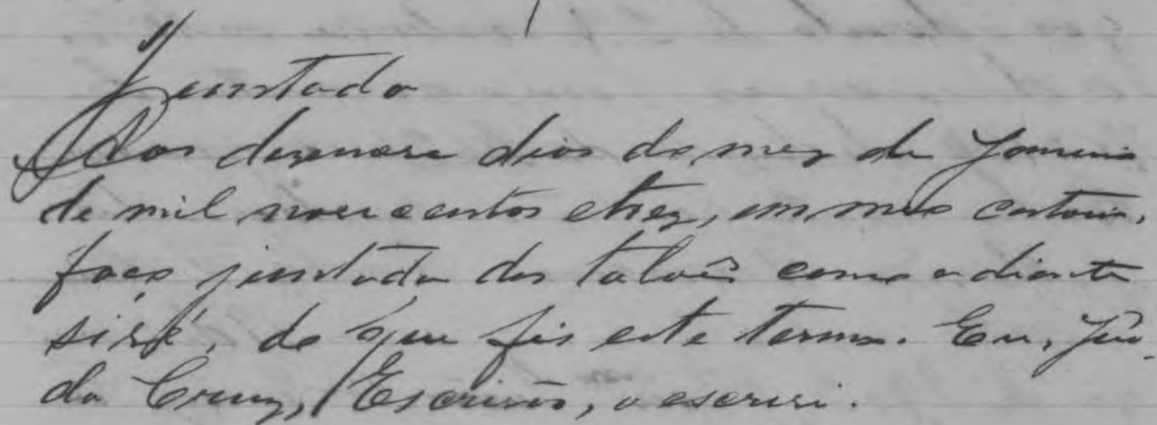 Juntada
Aos desenove dias do mez de Janeiro
de mil novecentos e trez, em meu cartorio,
faço juntada dos talões como adiante
se vê, do que fis este termo. Eu, João
da Cruz, Escrivão, o escrevi.